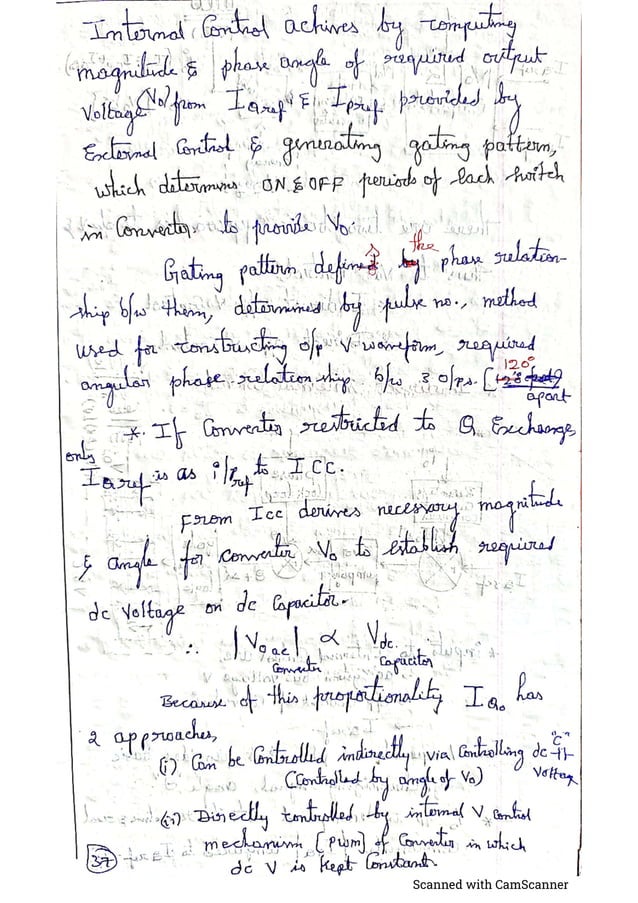 Internal Control achives by computing
magnitude & phase angle of required output
Voltage (Vo) from IQref & Ipref provided by
External Control & generating gating pattern,
which determins ON & OFF periods of each switch
in Converter to provide Vo
Gating pattern defines the phase relation-
ship b/w them, determined by pulse no., method
used for constructing o/p V waveform, required
angular phase relationship b/w 3 o/ps. [120°
apart]
*. If Converter restricted to Q Exchange,
only
IQref is as i/p ref to ICC.
From Icc derives necessary magnitude
& angle for converter Vo to establish required
dc Voltage on dc Capacitor.
∴ |Vo ac| ∝ Vdc
Converter Capacitor
Because of this proportionality IQo has
2 approaches,
(i) Can be Controlled indirectly via Controlling dc "C"
Voltage
(Controlled by angle of Vo)
(ii) Directly controlled by internal V control
mechanism [PWM] of Converter in which
dc V is kept Constant.
37
Scanned with CamScanner